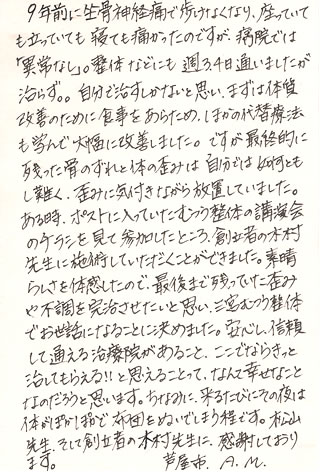 9年前に坐骨神経痛で歩けなくなり、座っていて
も立っていても寝ても痛かったのですが、病院では
「異常なし」。整体などにも週3、4日通いましたが
治らず。。自分で治すしかないと思い、まずは体質
改善のために食事をあらため、ほかの代替療法
も学んで大幅に改善しました。ですが最終的に
残った骨のずれと体の歪みは自分では如何とも
し難く、歪みに気付きながら放置していました。
ある時、ポストに入っていたむつう整体の講演会
のチラシを見て参加したところ、創立者の木村
先生に施術していただくことができました。素晴
らしさを体感したので、最後まで残っていた歪み
や不調を完治させたいと思い、三宮むつう整体
でお世話になることに決めました。安心し、信頼
して通える治療院があること、ここでならきっと
治してもらえる!!と思えることって、なんて幸せなこと
なのだろうと思います。ちなみに、来るたびにその夜は
体がぽかぽかで布団をぬいでしまう程です。松山
先生、そして創立者の木村先生に、感謝しており
ます。 芦屋市 A.M.